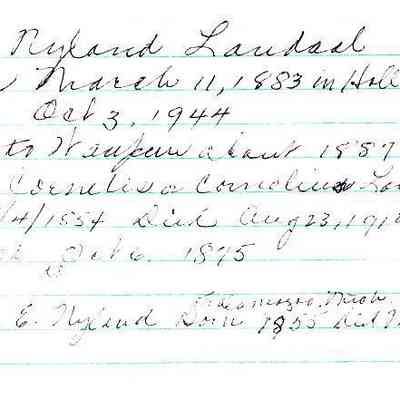 Nyland Landaal
March 11, 1883 in Holl
Oct 3, 1944
to Waupun about 1887
Cornelis or Cornelius La
/4/1854 Died Aug 23, 191
Oct 6. 1875
Kalamazoo, Mich
E. Nyland Born 1855 Died